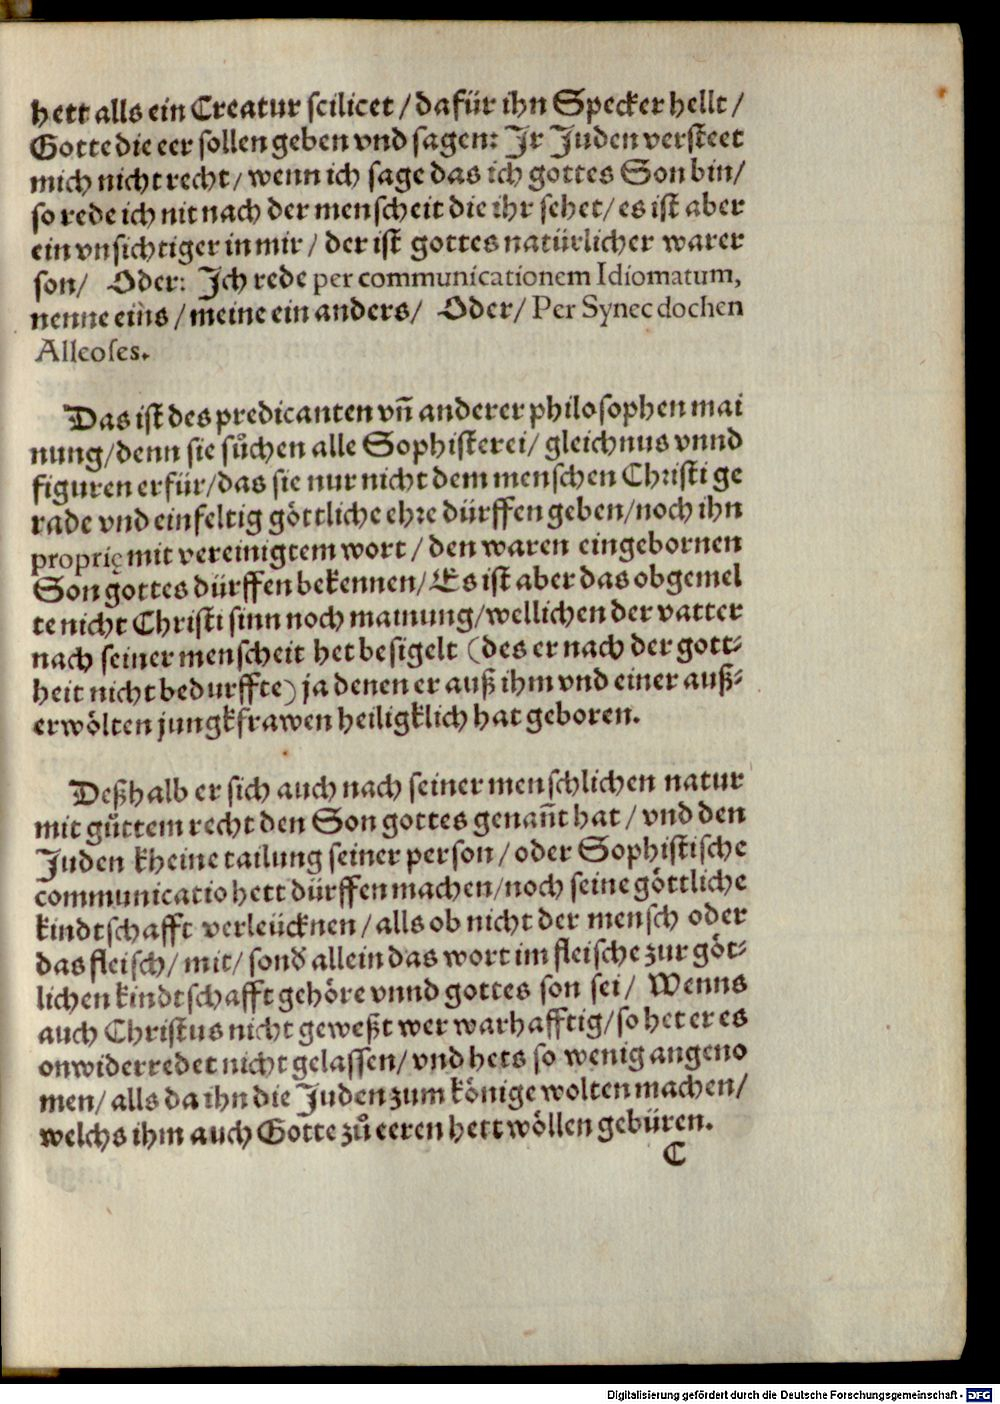 hett alls ein Creatur scilicet / dafür ihn Specker hellt /
Gotte die eer sollen geben vnd sagen: Jr Juden versteet
mich nicht recht / wenn ich sage das ich gottes Son bin /
so rede ich nit nach der menscheit die ihr sehet / es ist aber
ein vnsichtiger in mir / der ist gottes natürlicher warer
son / Oder: Jch rede per communicationem Idiomatum,
nenne eins / meine ein anders / Oder / Per Synecdochen
Alleoses.
Das ist des predicanten vn̄ anderer philosophen mai
nung / denn sie sůchen alle Sophisterei / gleichnus vnnd
figuren erfür / das sie nur nicht dem menschen Christi ge
rade vnd einfeltig göttliche ehre dürffen geben / noch ihn
proprie mit vereinigtem wort / den waren eingebornen
Son gottes dürffen bekennen / Es ist aber das obgemel
te nicht Christi sinn noch mainung / wellichen der vatter
nach seiner menscheit het besigelt (des er nach der gott-
heit nicht bedurffte) ja denen er auß ihm vnd einer auß-
erwölten jungkfrawen heiligklich hat geboren.
Deßhalb er sich auch nach seiner menschlichen natur
mit gůttem recht den Son gottes genañt hat / vnd den
Juden kheine tailung seiner person / oder Sophistische
communicatio hett dürffen machen / noch seine göttliche
kindtschafft verleücknen / alls ob nicht der mensch oder
das fleisch / mit / sond̕ allein das wort im fleische zur göt-
lichen kindtschafft gehöre vnnd gottes son sei / Wenns
auch Christus nicht geweßt wer warhafftig / so het er es
onwiderredet nicht gelassen / vnd hets so wenig angeno
men / alls da ihn die Juden zum könige wolten machen /
welchs ihm auch Gotte zů eeren hett wöllen gebüren.
C
Digitalisierung gefördert durch die Deutsche Forschungsgemeinschaft - DFG